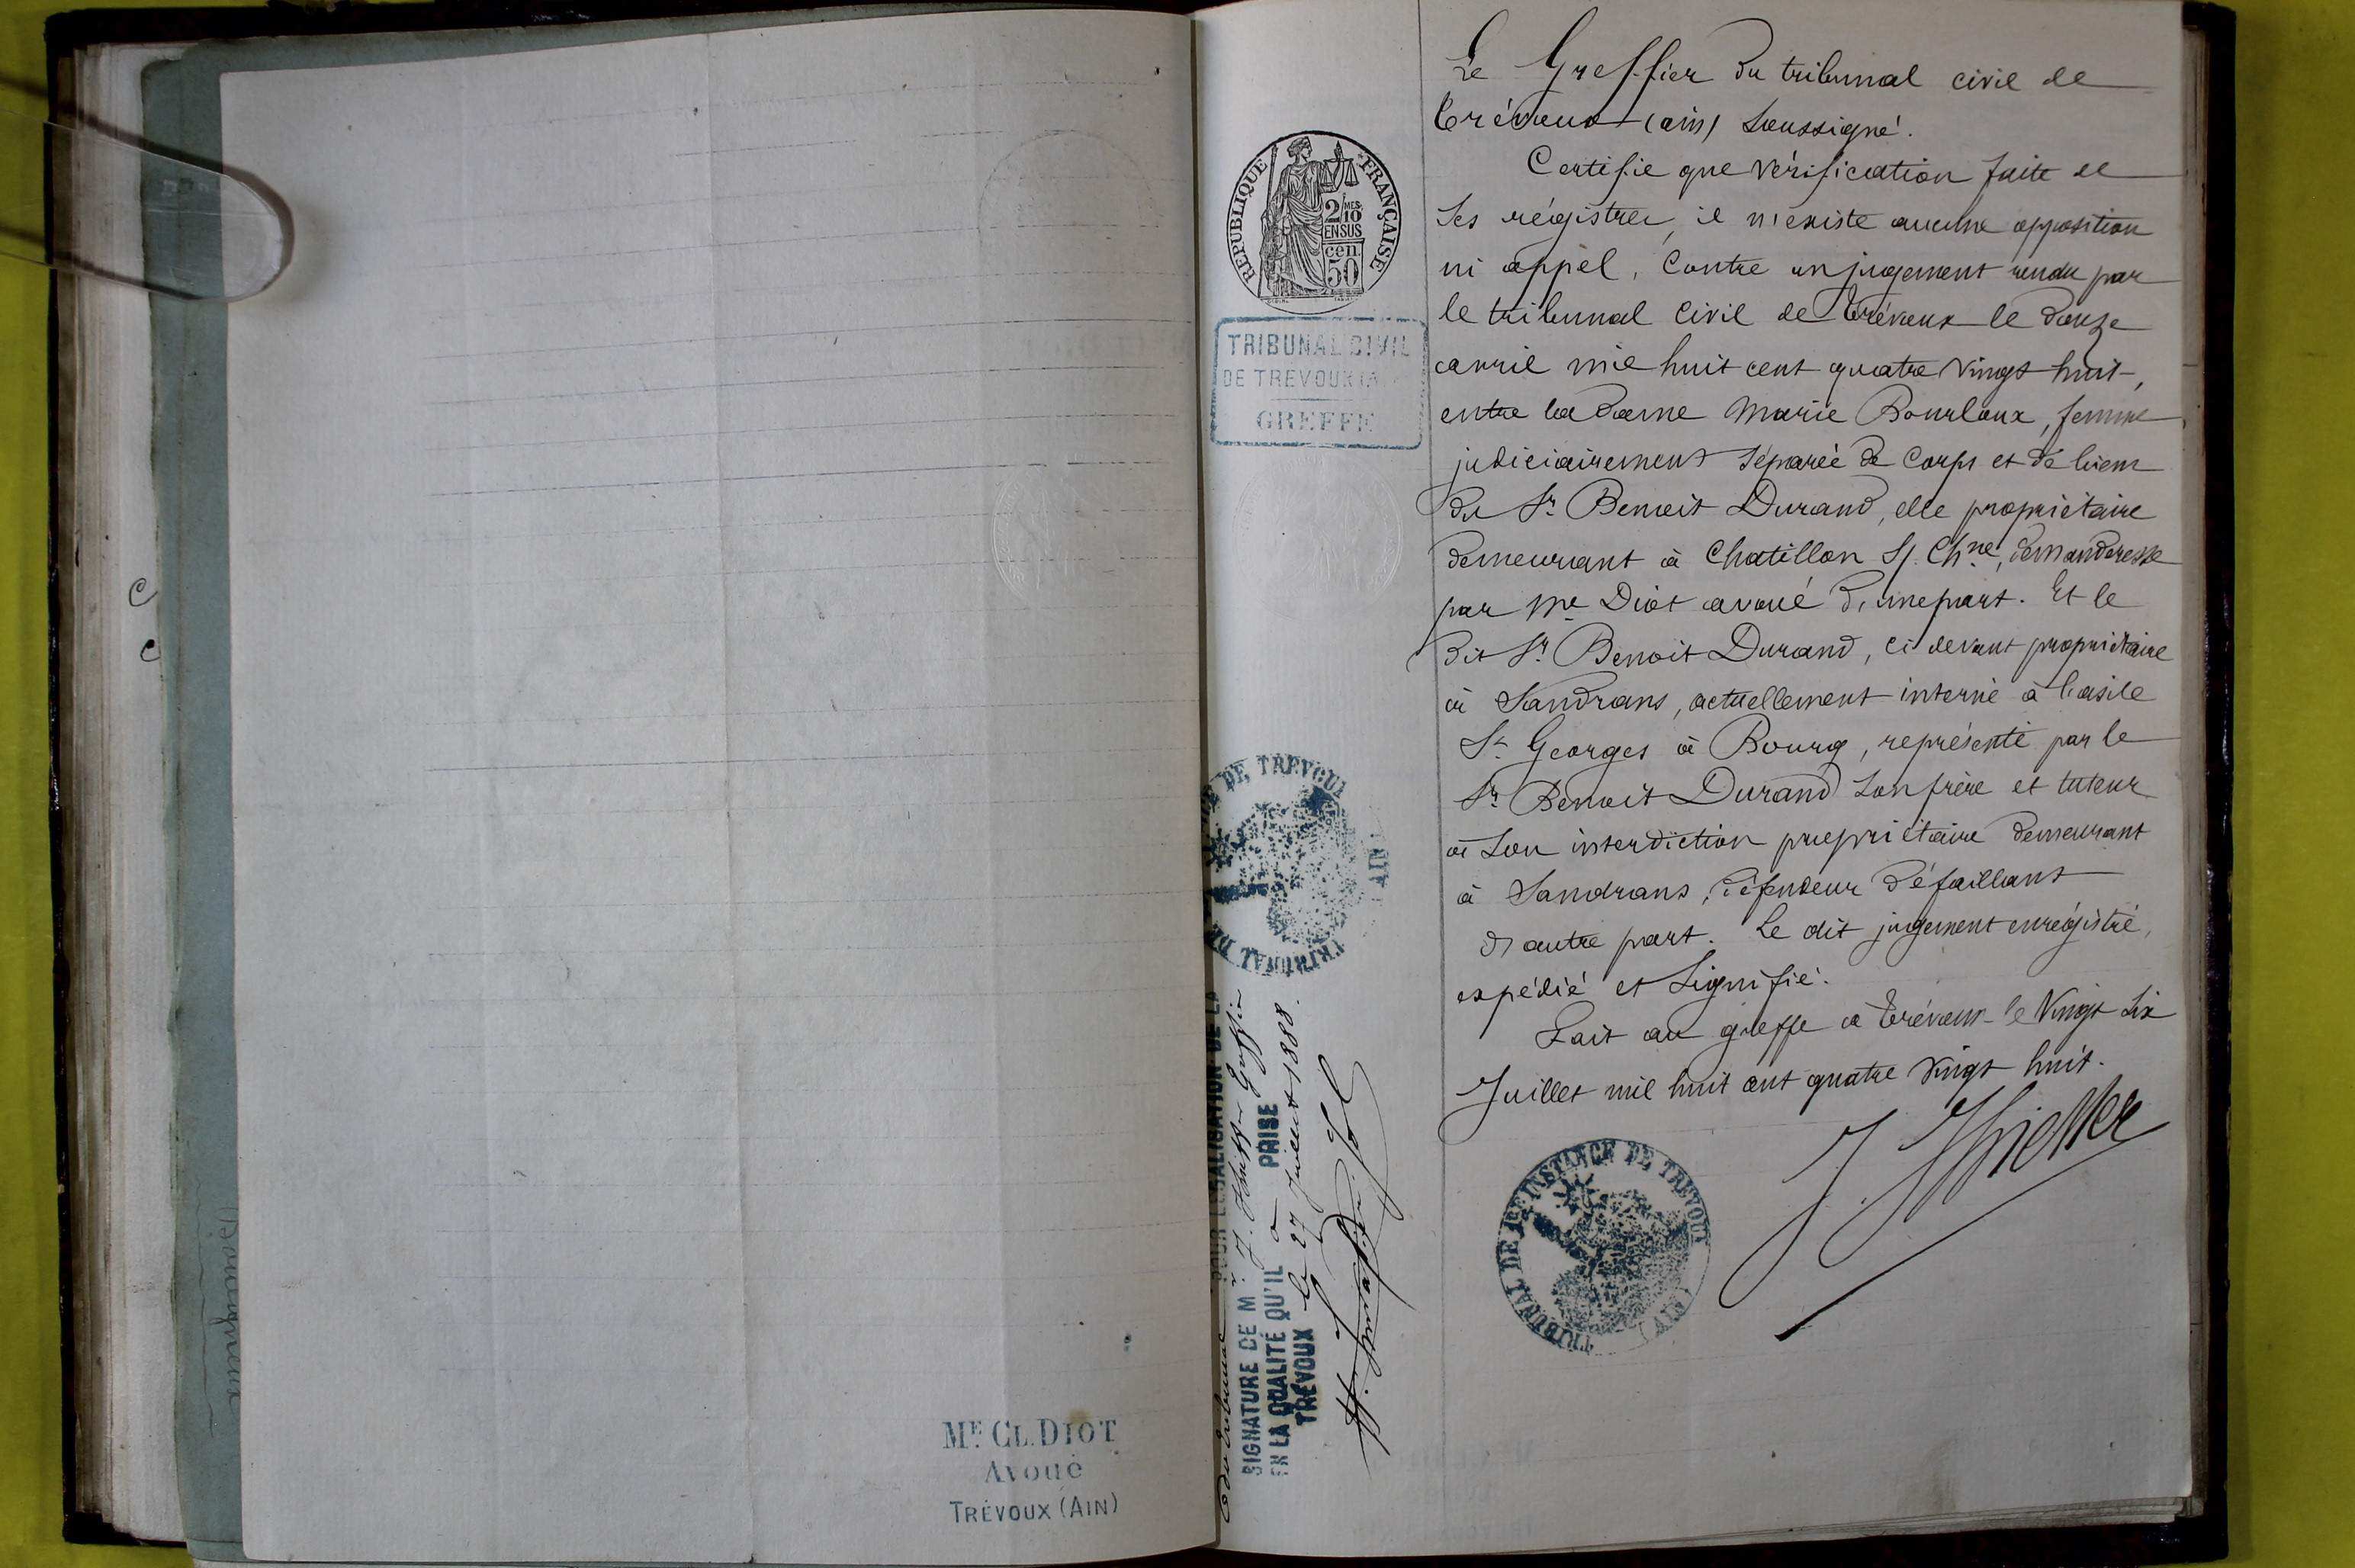 Mᵉ CL. DIOT
Avoué
TRÉVOUX (AIN)
RÉPUBLIQUE FRANÇAISE
2/10 EN SUS
50 cen
TRIBUNAL CIVIL
DE TREVOUX
GREFFE
POUR LÉGALISATION DE LA
SIGNATURE DE M J. Greffier
du tribunal
EN LA QUALITÉ QU'IL a PRISE
TRÉVOUX le 27 Juillet 1888.
Le Greffier du tribunal civil de
Trévoux (ain) Soussigné.
Certifie que vérification faite de
Ses régistres, il n'existe aucune opposition
ni appel, Contre un jugement rendu par
le tribunal Civil de Trévoux le Douze
avril mil huit cent quatre vingt huit,
entre la Dame Marie Bourloux, femme
judiciairement Séparée de Corps et de biens
du Sr Benoit Durand, elle propriétaire
demeurant à Chatillon S/ Chne, demanderesse
par Me Diot avoué d'une part. Et le
dit Sr Benoit Durand, ci devant propriétaire
à Sandrans, actuellement interné à l'asile
St Georges à Bourg, représenté par le
Sr Benoit Durand Son frère et tuteur
à Son interdiction propriétaire demeurant
à Sandrans, défendeur défaillant
d'autre part. Le dit jugement enrégistré,
expédié et Signifié.
Fait au greffe à Trévoux le Vingt Six
Juillet mil huit cent quatre Vingt huit.
TRIBUNAL DE 1ERE INSTANCE DE TREVOUX (AIN)